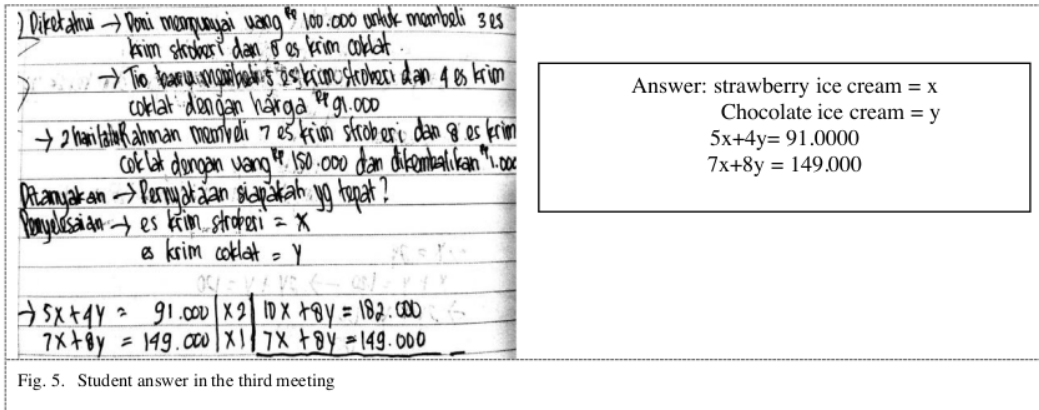 2) Diketahui → Doni mempunyai uang Rp 100.000 untuk membeli 3 es
krim stroberi dan 8 es krim coklat.
→ Tio baru membeli 5 es krim stroberi dan 4 es krim
coklat dengan harga Rp 91.000
→ 2 hari lalu Rahman membeli 7 es krim stroberi dan 8 es krim
coklat dengan uang Rp. 150.000 dan dikembalikan Rp 1.000
Ditanyakan → Pernyataan siapakah yg tepat?
Penyelesaian → es krim stroberi = X
es krim coklat = Y
→ 5X+4Y = 91.000 | X2 | 10X +8Y = 182.000
7X+8y = 149.000 | X1 | 7X +8Y = 149.000
Answer: strawberry ice cream = x
Chocolate ice cream = y
5x+4y= 91.0000
7x+8y = 149.000
Fig. 5. Student answer in the third meeting